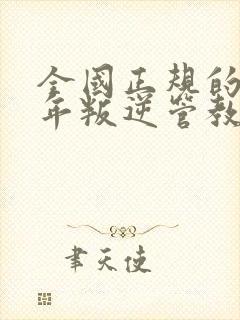 全國正規的
年叛逆管教
聿天使